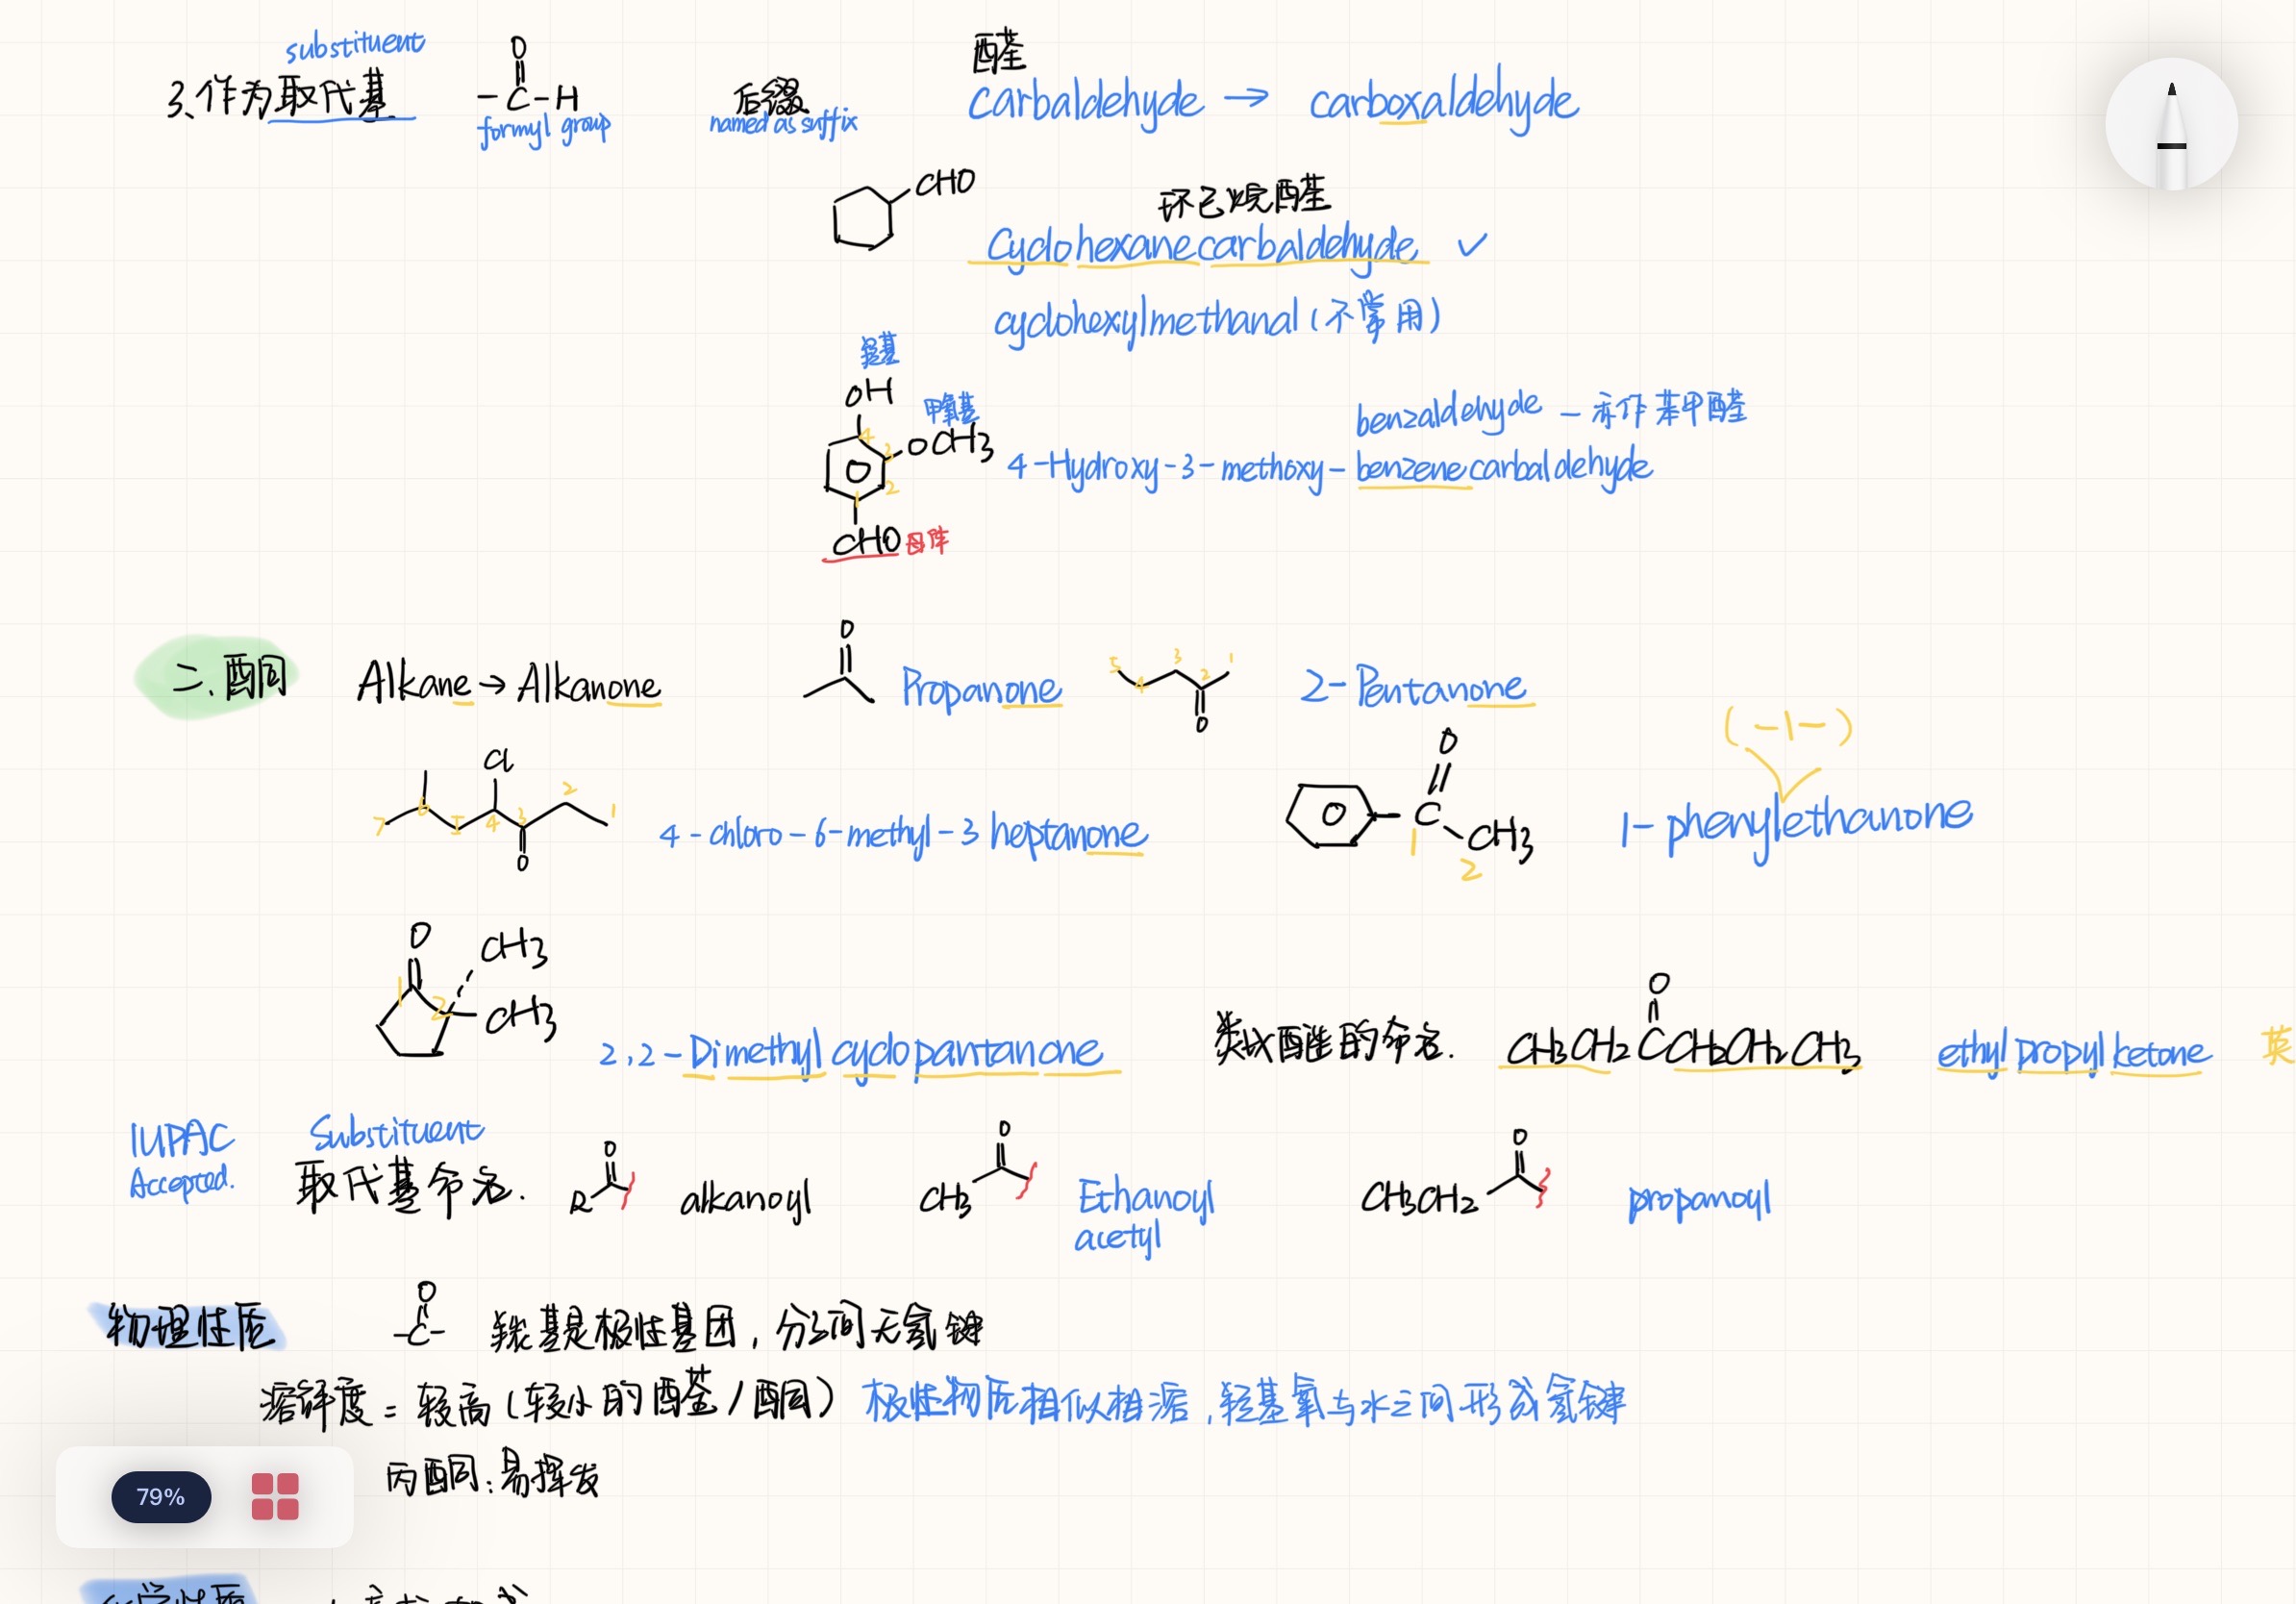 substituent
3.作为取代基 -C-H 后缀 醛
O
formyl group named as suffix carbaldehyde → carboxaldehyde
CHO
环己烷醛
Cyclohexanecarbaldehyde ✓
cyclohexylmethanal (不常用)
羟基
OH
甲氧基
OCH3
4 3 2 1
benzaldehyde — 亦作苯甲醛
4-Hydroxy-3-methoxy-benzenecarbaldehyde
CHO 母体
二.酮 Alkane → Alkanone O Propanone 5 4 3 2 1 O 2-Pentanone
(-1-)
Cl 7 6 5 4 3 2 1 O 4-chloro-6-methyl-3 heptanone
O C CH3 1 2 1-phenylethanone
O CH3 CH3 1 2
2,2-Dimethyl cyclopantanone
类似醚的命名. O CH3CH2CCH2CH2CH3 ethyl propyl ketone 英
IUPAC Substituent
Accepted. 取代基命名. R O alkanoyl CH3 O Ethanoyl CH3CH2 O propanoyl
acetyl
物理性质 O -C- 羰基是极性基团,分子间无氢键
溶解度=较高(较小的醛/酮) 极性物质相似相溶,羟基氧与水之间形成氢键
丙酮:易挥发
79%